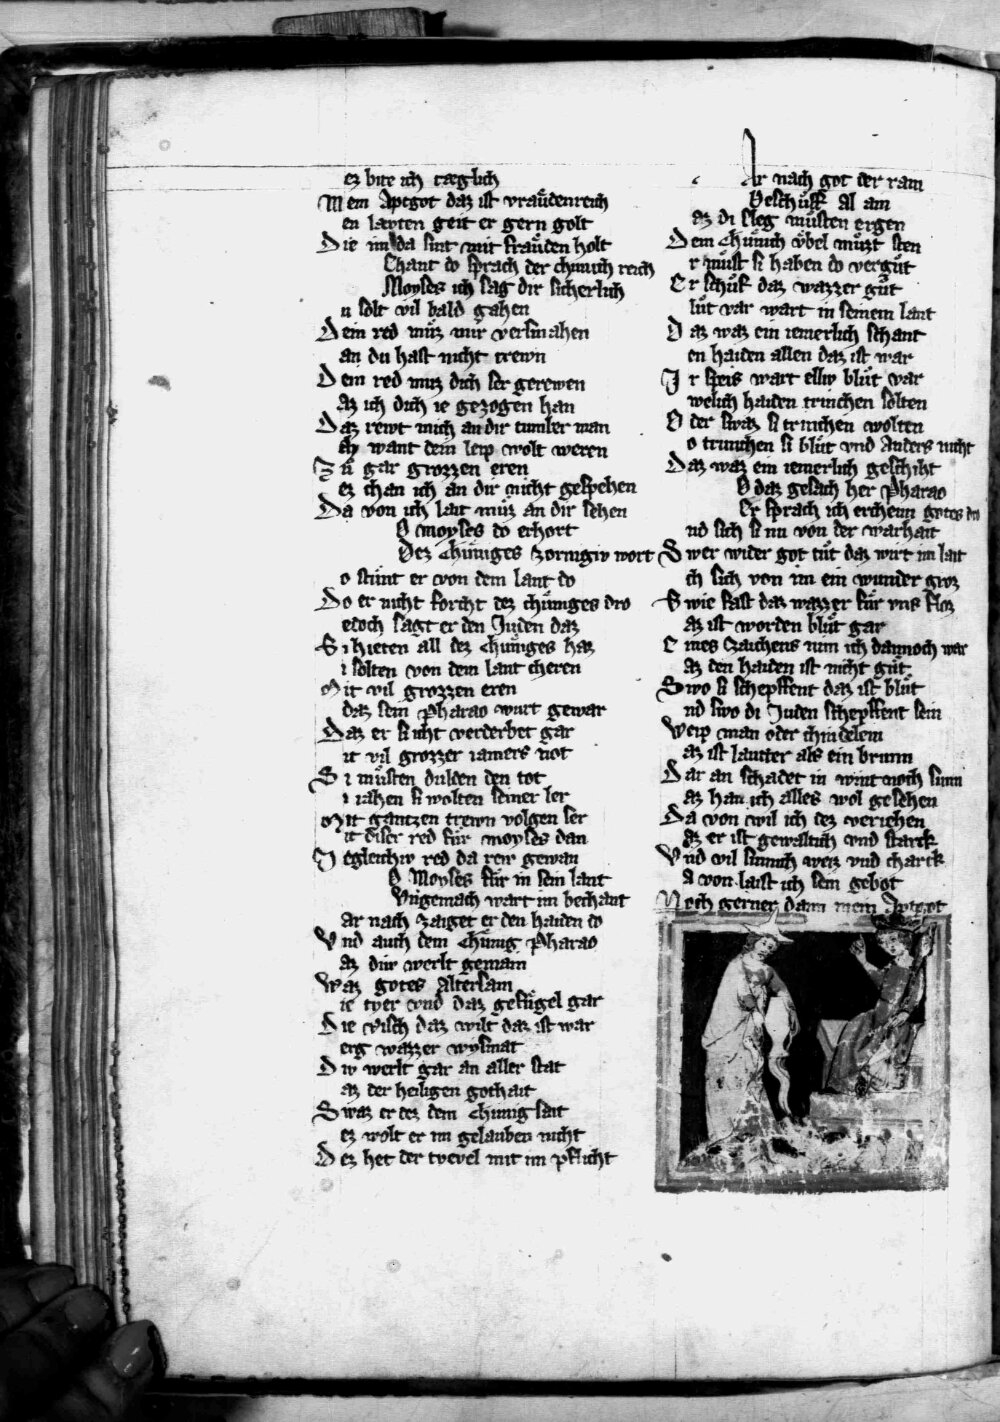 ez bite ich tæglich
Mein Aptgot daz ist vraůdenreich
en layten geit er gern golt
Die im da sint mit fraůden holt
Chant do sprach der chunich reich
Moyses ich sag dir sicherlich
u solt vil bald gahen
Dein red můz mir versmahen
an du hast nicht trewn
Dein red muz dich ser gerewen
az ich dich ie gezogen han
Daz rewt mich an dir tumler man
ch want dein leip wolt weren
Zů gar grozzen eren
ez chan ich an dir nicht gespehen
Da von ich lait můz an dir sehen
O moyses do erhort
Dez chůniges zornigiv wort
o stůnt er von dem lant do
Do er nicht forcht dez chůniges dro
edoch sagt er den Juden daz
Si hieten all dez chůniges haz
i solten von dem lant cheren
Mit vil grozzen eren
daz sein Pharao wurt gewar
Daz er si icht verderbet gar
it vil grozzer iamers not
Si můsten dulden den tot
i iahen si wolten seiner ler
Mit gantzen trewn volgen ser
it diser red fůr moyses dan
Jegleichiv red da rew gewan
O Moyses fůr in sein lant
Vngemach wart im bechant
ar nach zaiget er den haiden do
Vnd auch dem chůnig Pharao
az div werlt gemain
Waz gotes Altersam
ie tyer vnd daz gefůgel gar
Die visch daz wilt daz ist war
erg wazzer wysmat
Div werlt gar an aller stat
az der heiligen gothait
Swaz er dez dem chunig sait
ez wolt er im gelauben nicht
Dez het der tvevel mit im pflicht
Ar nach got der rain
Beschůff al am
az di sleg můsten ergen
Dem chůnich ůbel můzt sten
r můst si haben do vergůt
Er schůf daz wazzer gůt
lůt var wart in seinem lant
Daz waz ein iemerlich schant
en haiden allen daz ist war
Jr speis wart elliv blůt var
welich haiden trinchen solten
Oder swaz si trinchen wolten
o trunchen si blůt vnd Anders nicht
Daz waz ein iemerlich geschiht
O daz gesach her Pharao
Er sprach ich erchenn gotes dro
nd sich si nu von der warhait
Swer wider got tůt daz wirt im lait
ch sich von im ein wunder groz
Swie fast daz wazzer fůr vns floz
az ist worden blůt gar
Eines czaichens nim ich dannoch war
az den haiden ist nicht gůt
Swo si schepffent daz ist blůt
nd swo di Juden schepffent sein
Weip man oder chindelein
az ist lautter als ein brunn
Dar an schadet in wint noch sunn
az han ich alles wol gesehen
Da von wil ich dez veriehen
az er ist gewaltich vnd starck
Vnd vil sinnich weiz vnd charck
a von laist ich sein gebot
Noch gerner dann mein Aptgot